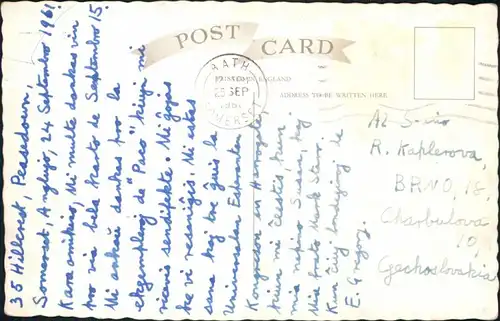 POST CARD
PRINTED IN ENGLAND
ADDRESS TO BE WRITTEN HERE
BATH
25 SEP
1961
SOMERSET
35 Hillcrest, Peasedown,
Somerset, Anglujo, 24 Septembro 1961
Kara amikino, Mi multe dankas vin
pro via bela karto de Septembro 15.
Mi ankaŭ dankas pro la
ekzempleroj de "Paco" kiujn mi
ricevis sendifekte. Mi ĝojas
ke vi resaniĝis. Mi estas
sana kaj tre ĝuis la
Universalan Esperanto
Kongreson en Harrogate
kiun mi ĉeestis, kun
mia nepino Susan, kaj
Mia frato
Kun ĉiuj bondeziroj de
E. Gregory.
Al S-ino
R. Kaplerova,
BRNO, 18,
Charbulova
10
Czechoslovakia